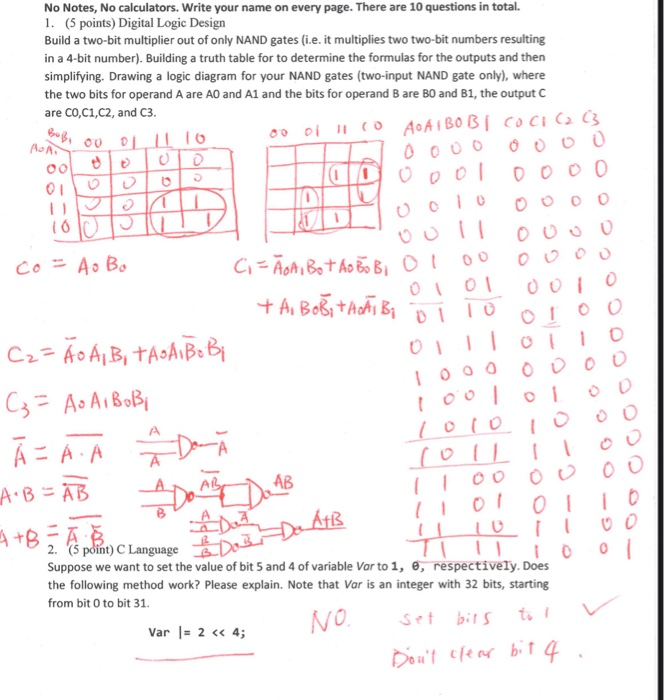 No Notes, No calculators. Write your name on every page. There are 10 questions in total.
1. (5 points) Digital Logic Design
Build a two-bit multiplier out of only NAND gates (i.e. it multiplies two two-bit numbers resulting
in a 4-bit number). Building a truth table for to determine the formulas for the outputs and then
simplifying. Drawing a logic diagram for your NAND gates (two-input NAND gate only), where
the two bits for operand A are A0 and A1 and the bits for operand B are B0 and B1, the output C
are C0,C1,C2, and C3.
B0B1 00 01 11 10
A0A1
00 0 0 0 0
01 0 0 0 0
11 0 0 1 1
10 0 0 1 1
00 01 11 10
1 1
1 1
1 1
A0A1B0B1 C0 C1 C2 C3
0 0 0 0 0 0 0 0
0 0 0 1 0 0 0 0
0 0 1 0 0 0 0 0
0 0 1 1 0 0 0 0
0 1 0 0 0 0 0 0
0 1 0 1 0 0 1 0
0 1 1 0 0 1 0 0
0 1 1 1 0 1 1 0
1 0 0 0 0 0 0 0
1 0 0 1 0 1 0 0
1 0 1 0 1 0 0 0
1 0 1 1 1 1 0 0
1 1 0 0 0 0 0 0
1 1 0 1 0 1 1 0
1 1 1 0 1 1 0 0
1 1 1 1 1 0 0 1
C0 = A0 B0
C1 = A̅0A1B0 + A0B̅0B1
+ A1B0B̅1 + A0A̅1B1
C2 = A̅0A1B1 + A0A1B̅0B1
C3 = A0A1B0B1
A̅ = A·A
A A A̅
A·B = AB
A B AB AB
A+B = A̅·B̅
A A A̅ B B B̅ A+B
2. (5 point) C Language
Suppose we want to set the value of bit 5 and 4 of variable Var to 1, 0, respectively. Does
the following method work? Please explain. Note that Var is an integer with 32 bits, starting
from bit 0 to bit 31.
Var |= 2 << 4;
NO. set bits to 1 ✓
Don't clear bit 4.